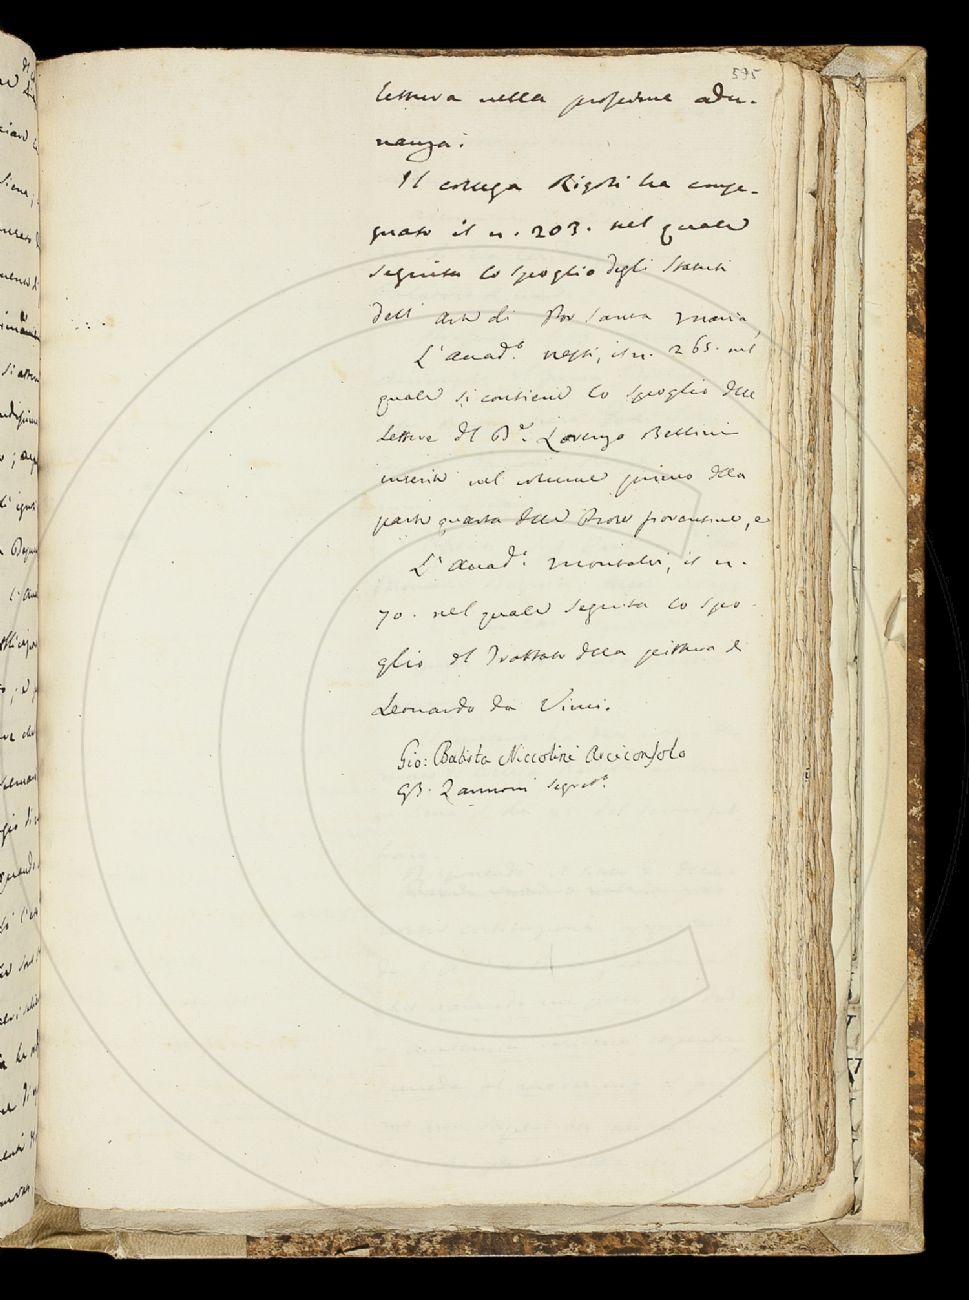 595
lettura nella prossima adu-
nanza.
Il collega Rigoli ha conse-
gnato il n. 203. nel quale
seguita lo spoglio degli Statuti
dell' Arte di Por Santa Maria,
L'Accad.º Nesti, il n. 265. nel
quale si contiene lo spoglio delle
Lettere del D.r Lorenzo Bellini
inserite nel volume primo della
parte quarta delle Prose fiorentine, e
L'Accad.º Montalvi, il n.
70. nel quale seguita lo spo-
glio del Trattato della pittura di
Leonardo da Vinci.
Gio: Batista Niccolini Arciconsolo
GB. Zannoni Segret.º